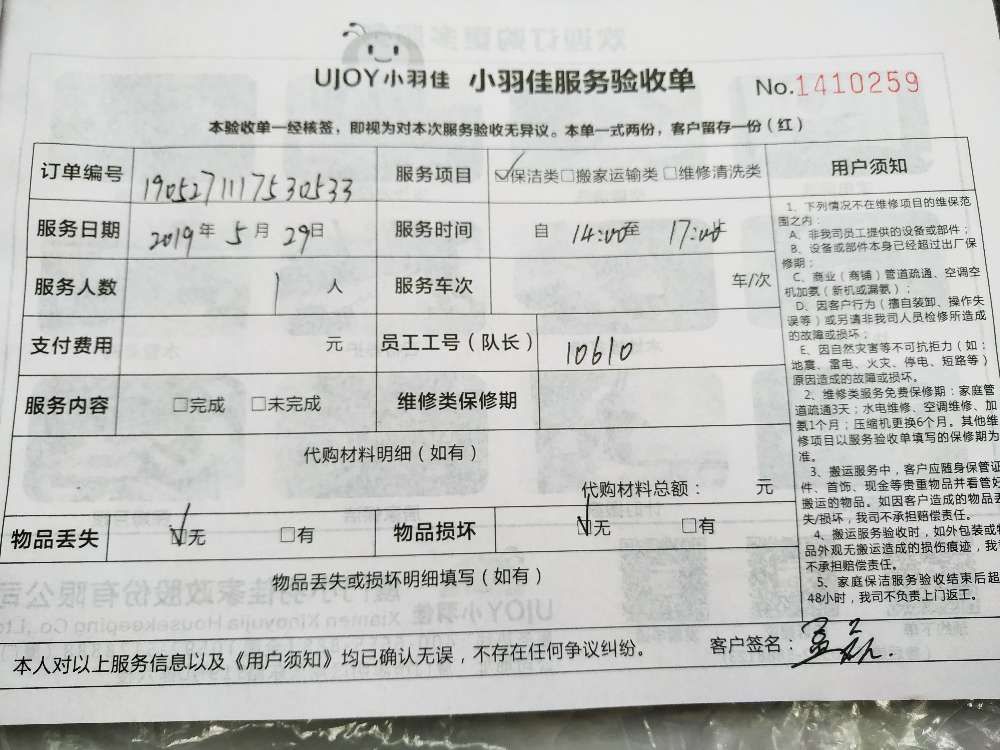 UJOY小羽佳 小羽佳服务验收单 No.1410259
本验收单一经核签，即视为对本次服务验收无异议。本单一式两份，客户留存一份（红）
订单编号 1905271117530533 服务项目 ☑保洁类□搬家运输类□维修清洗类
服务日期 2019年5月29日 服务时间 自 14:00至 17:00
服务人数 1 人 服务车次 车/次
支付费用 元 员工工号（队长） 10610
服务内容 □完成 □未完成 维修类保修期
代购材料明细（如有）
代购材料总额： 元
物品丢失 ☑无 □有 物品损坏 ☑无 □有
物品丢失或损坏明细填写（如有）
用户须知
1、下列情况不在维修项目的维保范
围之内：
A、非我司员工提供的设备或部件；
B、设备或部件本身已经超过出厂保
修期；
C、商业（商铺）管道疏通、空调空
机加氨（新机或漏氨）；
D、因客户行为（擅自装卸、操作失
误等）或另请非我司人员检修所造成
的故障或损坏；
E、因自然灾害等不可抗拒力（如：
地震、雷电、火灾、停电、短路等）
原因造成的故障或损坏。
2、维修类服务免费保修期：家庭管
道疏通3天；水电维修、空调维修、加
氨1个月；压缩机更换6个月。其他维
修项目以服务验收单填写的保修期为
准。
3、搬运服务中，客户应随身保管证
件、首饰、现金等贵重物品并看管好
搬运的物品。如因客户造成的物品丢
失/损坏，我司不承担赔偿责任。
4、搬运服务验收时，如外包装或物
品外观无搬运造成的损伤痕迹，我司
不承担赔偿责任。
5、家庭保洁服务验收结束后超
48小时，我司不负责上门返工。
本人对以上服务信息以及《用户须知》均已确认无误，不存在任何争议纠纷。 客户签名：